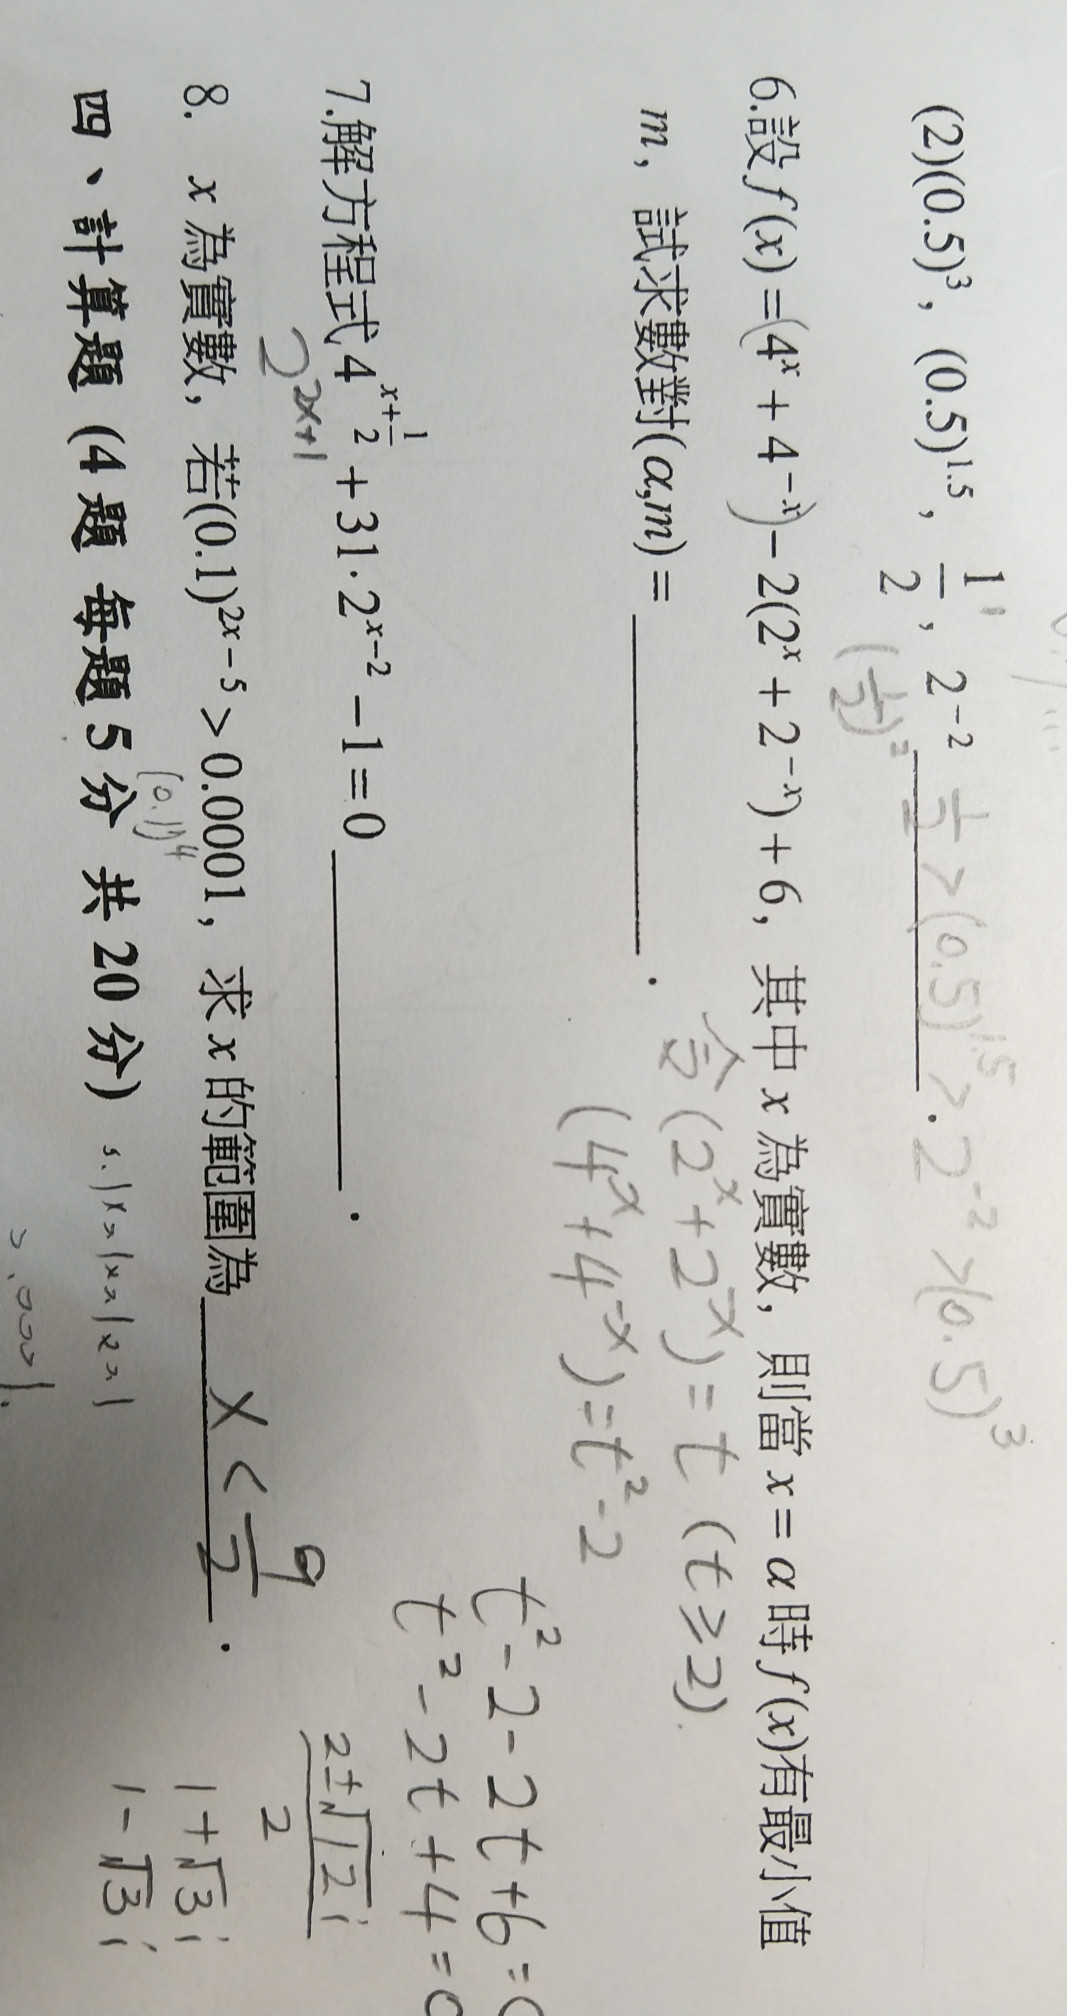 (2)(0.5)³, (0.5)^1.5, 1/2, 2⁻² 1/2>(0.5)^1.5>2⁻²>(0.5)³.
(1/2)²
6.設f(x)=(4ˣ+4⁻ˣ)-2(2ˣ+2⁻ˣ)+6, 其中x為實數, 則當x=α時f(x)有最小值
m, 試求數對(α,m)=________.
令(2ˣ+2⁻ˣ)=t (t≥2).
(4ˣ+4⁻ˣ)=t²-2
t²-2-2t+6=0
t²-2t+4=0
(2±√12 i)/2
1+√3 i
1-√3 i
7.解方程式4^(x+1/2)+31·2^(x-2)-1=0________.
2^(2x+1)
8. x為實數, 若(0.1)^(2x-5)>0.0001, 求x的範圍為 x<9/2.
(0.1)⁴
四、計算題 (4題 每題5分 共20分)